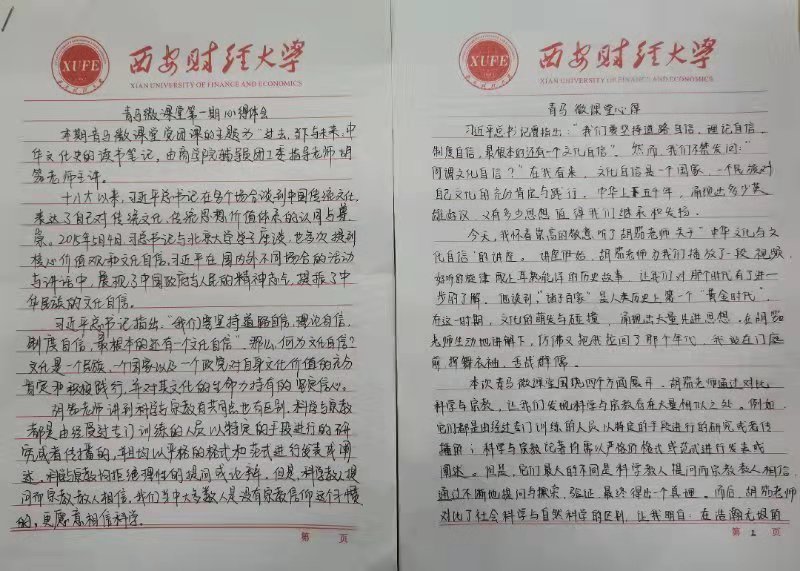 XUFE
西安财经大学
XIAN UNIVERSITY OF FINANCE AND ECONOMICS
青马微课堂第一期心得体会
本期青马微课堂党团课的主题为"过去、当下与未来，中
华文化史的读书笔记，由商学院辅导员团工委指导老师胡
茹老师主讲。
十八大以来，习近平总书记在各个场合谈到中国传统文化，
表达了自己对传统文化、传统思想价值体系的认同与尊
崇。2015年5月4日习总书记与北京大学学子座谈，也多次提到
核心价值观和文化自信。习近平在国内外不同场合的活动
与讲话中，展现了中国政府与人民的精神志气，提振了中
华民族的文化自信。
习近平总书记指出："我们要坚持道路自信、理论自信、
制度自信，最根本的还有一个文化自信"。那么，何为文化自信？
文化是一个民族、一个国家以及一个政党对自身文化价值的充分
肯定和积极践行，并对其文化的生命力持有的坚定信心。
胡茹老师讲到科学与宗教有共同点也有区别，科学与宗教
都是由经受过专门训练的人员以特定的手段进行的研
究或者传播的，并均以严格的格式和范式进行发表或阐
述。科学宗教均拒绝弹性的提问或论辩。但是，科学教人提
问而宗教教人相信。我们当中大多数人是没有宗教信仰这个习惯
的，更愿意相信科学。
第 页
XUFE
西安财经大学
XIAN UNIVERSITY OF FINANCE AND ECONOMICS
青马微课堂心得
习近平总书记曾指出："我们要坚持道路自信、理论自信、
制度自信，最根本的还有一个文化自信"。然而，我们不禁发问："
何谓文化自信？"在我看来，文化自信是一个国家、一个民族对
自己文化的充分肯定与践行。中华上下五千年，涌现出多少英
雄好汉，又有多少思想值得我们继承和发扬。
今天，我怀着崇高的敬意听了胡茹老师关于"中华文化与文
化自信"的讲座。讲座开始，胡茹老师为我们播放了一段视频，
好听的旋律配上耳熟能详的历史故事，让我们对那个时代有了进一
步的了解。而谈到，"诸子百家"是人类历史上第一个"黄金时代"，
在这一时期，文化的萌发与碰撞，涌现出大量先进思想。在胡茹
老师生动地讲解下，仿佛又把我拉回了那个年代，我站在门庭
前，挥舞衣袖，舌战群儒。
本次青马微课堂围绕四个方面展开，胡茹老师通过对比
科学与宗教，让我们发现科学与宗教存在大量相似之处。例如，
它们都是由经过专门训练的人员以特定的手段进行的研究或者传
播的；科学与宗教记者均需以严格的格式或范式进行发表或
阐述。但是，它们最大的不同是科学教人提问而宗教教人相信，
通过不断地提问与探索，验证，最终得出一个真理。而后，胡茹老师
对比了社会科学与自然科学的区别，让我明白：在浩瀚无垠的
第 2 页